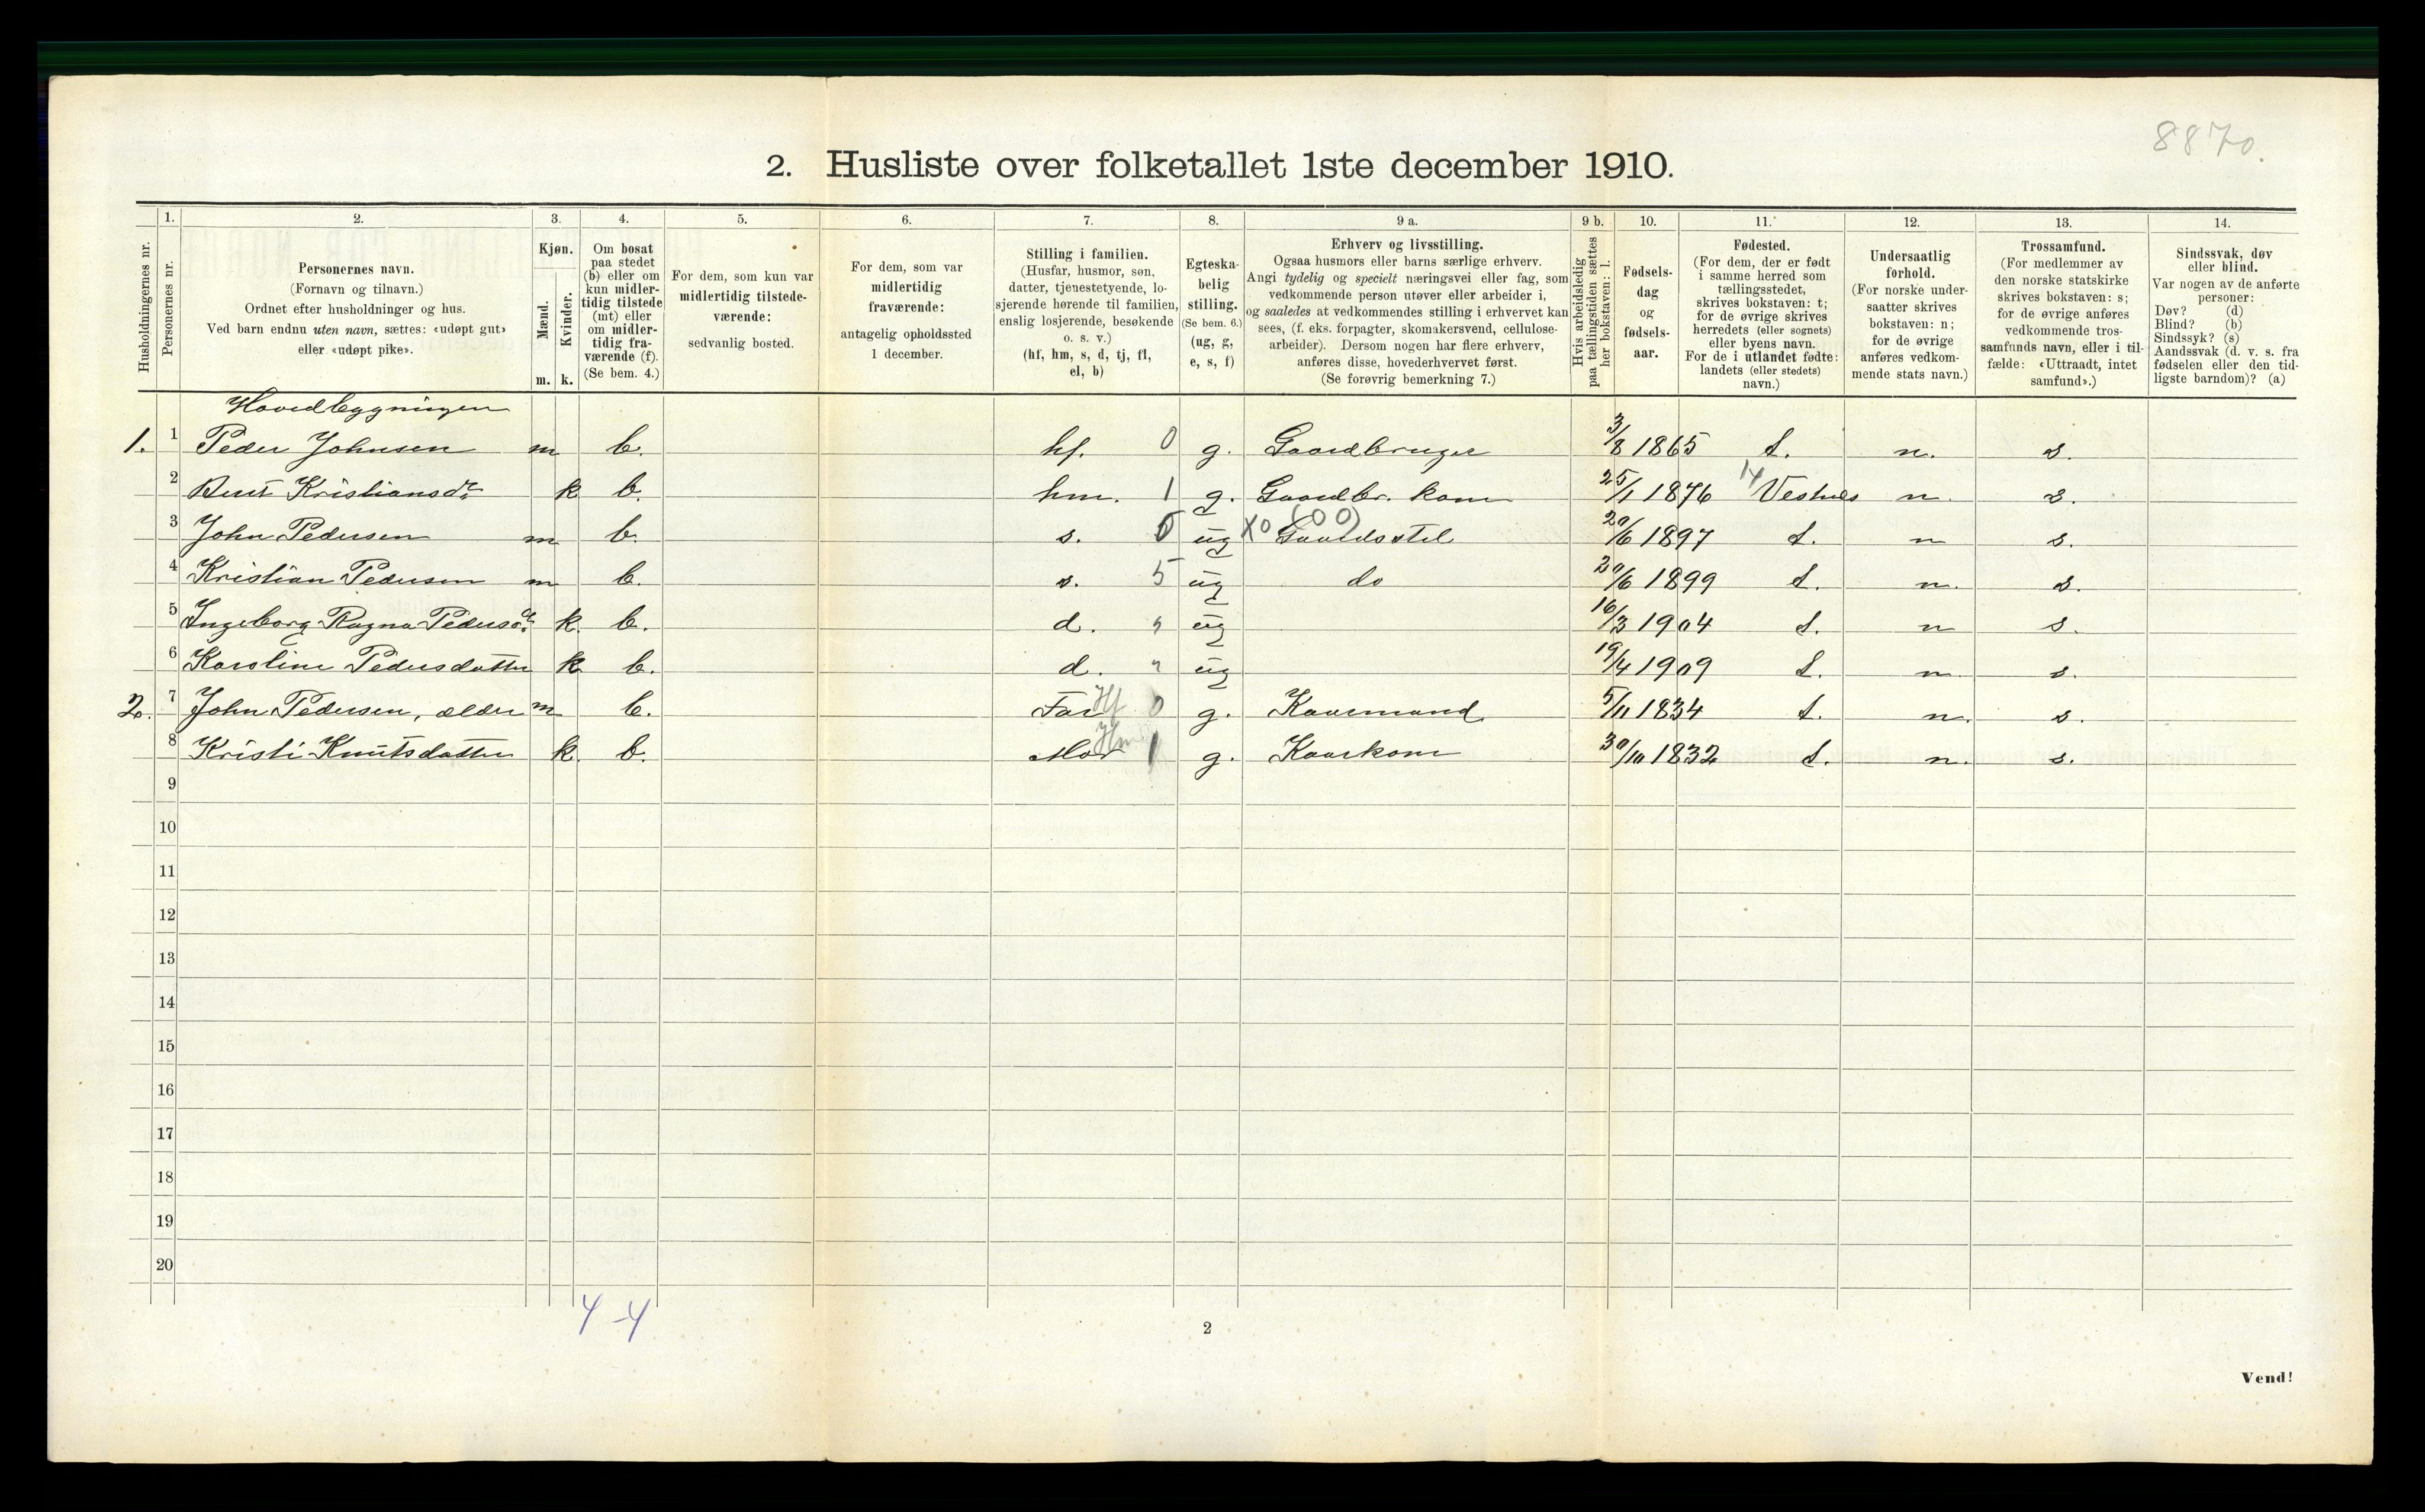 8870.
2. Husliste over folketallet 1ste december 1910.
Husholdningernes nr.
1.
Personernes nr.
2.
Personernes navn.
(Fornavn og tilnavn.)
Ordnet efter husholdninger og hus.
Ved barn endnu uten navn, sættes: «udøpt gut»
eller «udøpt pike».
3.
Kjøn.
Mænd.
Kvinder.
m. k.
4.
Om bosat
paa stedet
(b) eller om
kun midler-
tidig tilstede
(mt) eller
om midler-
tidig fra-
værende (f).
(Se bem. 4.)
5.
For dem, som kun var
midlertidig tilstede-
værende:
sedvanlig bosted.
6.
For dem, som var
midlertidig
fraværende:
antagelig opholdssted
1 december.
7.
Stilling i familien.
(Husfar, husmor, søn,
datter, tjenestetyende, lo-
sjerende hørende til familien,
enslig losjerende, besøkende
o. s. v.)
(hf, hm, s, d, tj, fl,
el, b)
8.
Egteska-
belig
stilling.
(Se bem. 6.)
(ug, g,
e, s, f)
9 a.
Erhverv og livsstilling.
Ogsaa husmors eller barns særlige erhverv.
Angi tydelig og specielt næringsvei eller fag, som
vedkommende person utøver eller arbeider i,
og saaledes at vedkommendes stilling i erhvervet kan
sees, (f. eks. forpagter, skomakersvend, cellulose-
arbeider). Dersom nogen har flere erhverv,
anføres disse, hovederhvervet først.
(Se forøvrig bemerkning 7.)
9 b.
Hvis arbeidsledig
paa tællingstiden sættes
her bokstaven: l.
10.
Fødsels-
dag
og
fødsels-
aar.
11.
Fødested.
(For dem, der er født
i samme herred som
tællingsstedet,
skrives bokstaven: t;
for de øvrige skrives
herredets (eller sognets)
eller byens navn.
For de i utlandet fødte:
landets (eller stedets)
navn.)
12.
Undersaatlig
forhold.
(For norske under-
saatter skrives
bokstaven: n;
for de øvrige
anføres vedkom-
mende stats navn.)
13.
Trossamfund.
(For medlemmer av
den norske statskirke
skrives bokstaven: s;
for de øvrige anføres
vedkommende tros-
samfunds navn, eller i til-
fælde: «Uttraadt, intet
samfund».)
14.
Sindssvak, døv
eller blind.
Var nogen av de anførte
personer:
Døv? (d)
Blind? (b)
Sindssyk? (s)
Aandssvak (d. v. s. fra
fødselen eller den tid-
ligste barndom)? (a)
Hovedbygningen
1. 1 Peder Johnsen m b. hf. 0 g. Gaardbruger 3/8 1865 t. n. s.
2 Kristiansdr k b. hm. 1 g. Gaardbr. kone 25/1 1876 14 Vestnes n. s.
3 John Pedersen m b. s. 5 ug X0 (00) Gaardsstel 20/6 1897 t. n s.
4 Kristian Pedersen m b. s. 5 ug do 20/6 1899 t. n. s.
5 Ingeborg Ragna Pedersdr k b. d. " ug 16/3 1904 t. n s.
6 Karoline Pedersdatter k b. d. " ug 19/4 1909 t. n. s.
2. 7 John Pedersen, ældre m b. Far Hf 0 g. Kaarmand 5/11 1834 t. n. s.
8 Kristi Knutsdatter k. b. Mor Hm 1 g. Kaarkone 30/10 1832 t. n. s.
9
10
11
12
13
14
15
16
17
18
19
20
4-4
2
Vend!